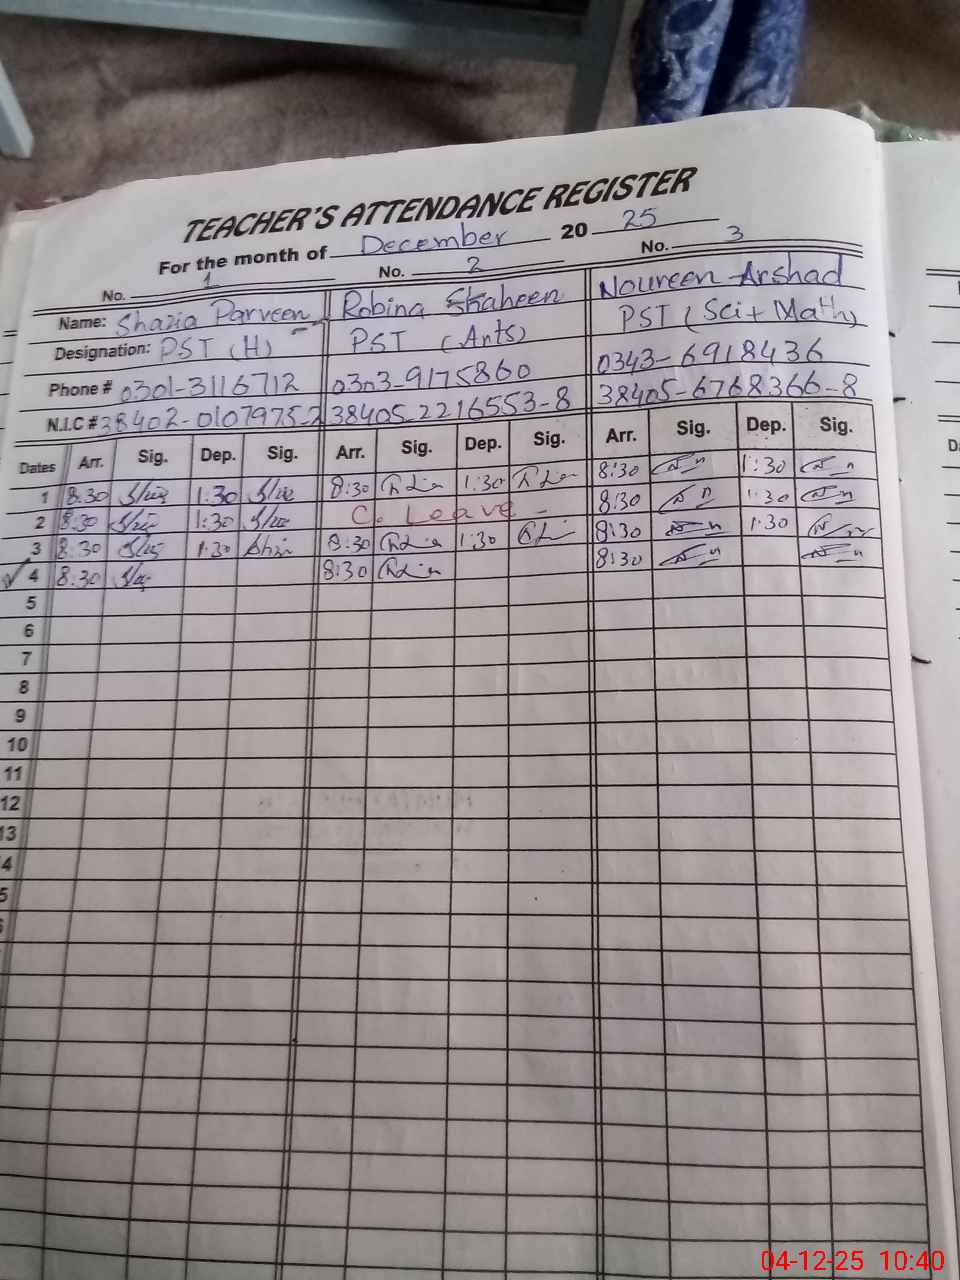 TEACHER'S ATTENDANCE REGISTER
For the month of December 20 25
No. 1 No. 2 No. 3
Name: Shazia Parveen Robina Shaheen Noureen Arshad
Designation: PST (H) PST (Arts) PST (Sci + Math)
Phone # 0301-3116712 0303-9175860 0343-6918436
N.I.C # 38402-0107975-2 38405-2216553-8 38405-6768366-8
Dates Arr. Sig. Dep. Sig. Arr. Sig. Dep. Sig. Arr. Sig. Dep. Sig.
1 8:30 1:30 8:30 1:30 8:30 1:30
2 8:30 1:30 C. Leave 8:30 1:30
3 8:30 1:30 8:30 1:30 8:30 1:30
4 8:30 8:30 8:30
5
6
7
8
9
10
11
12
13
4
5
04-12-25 10:40